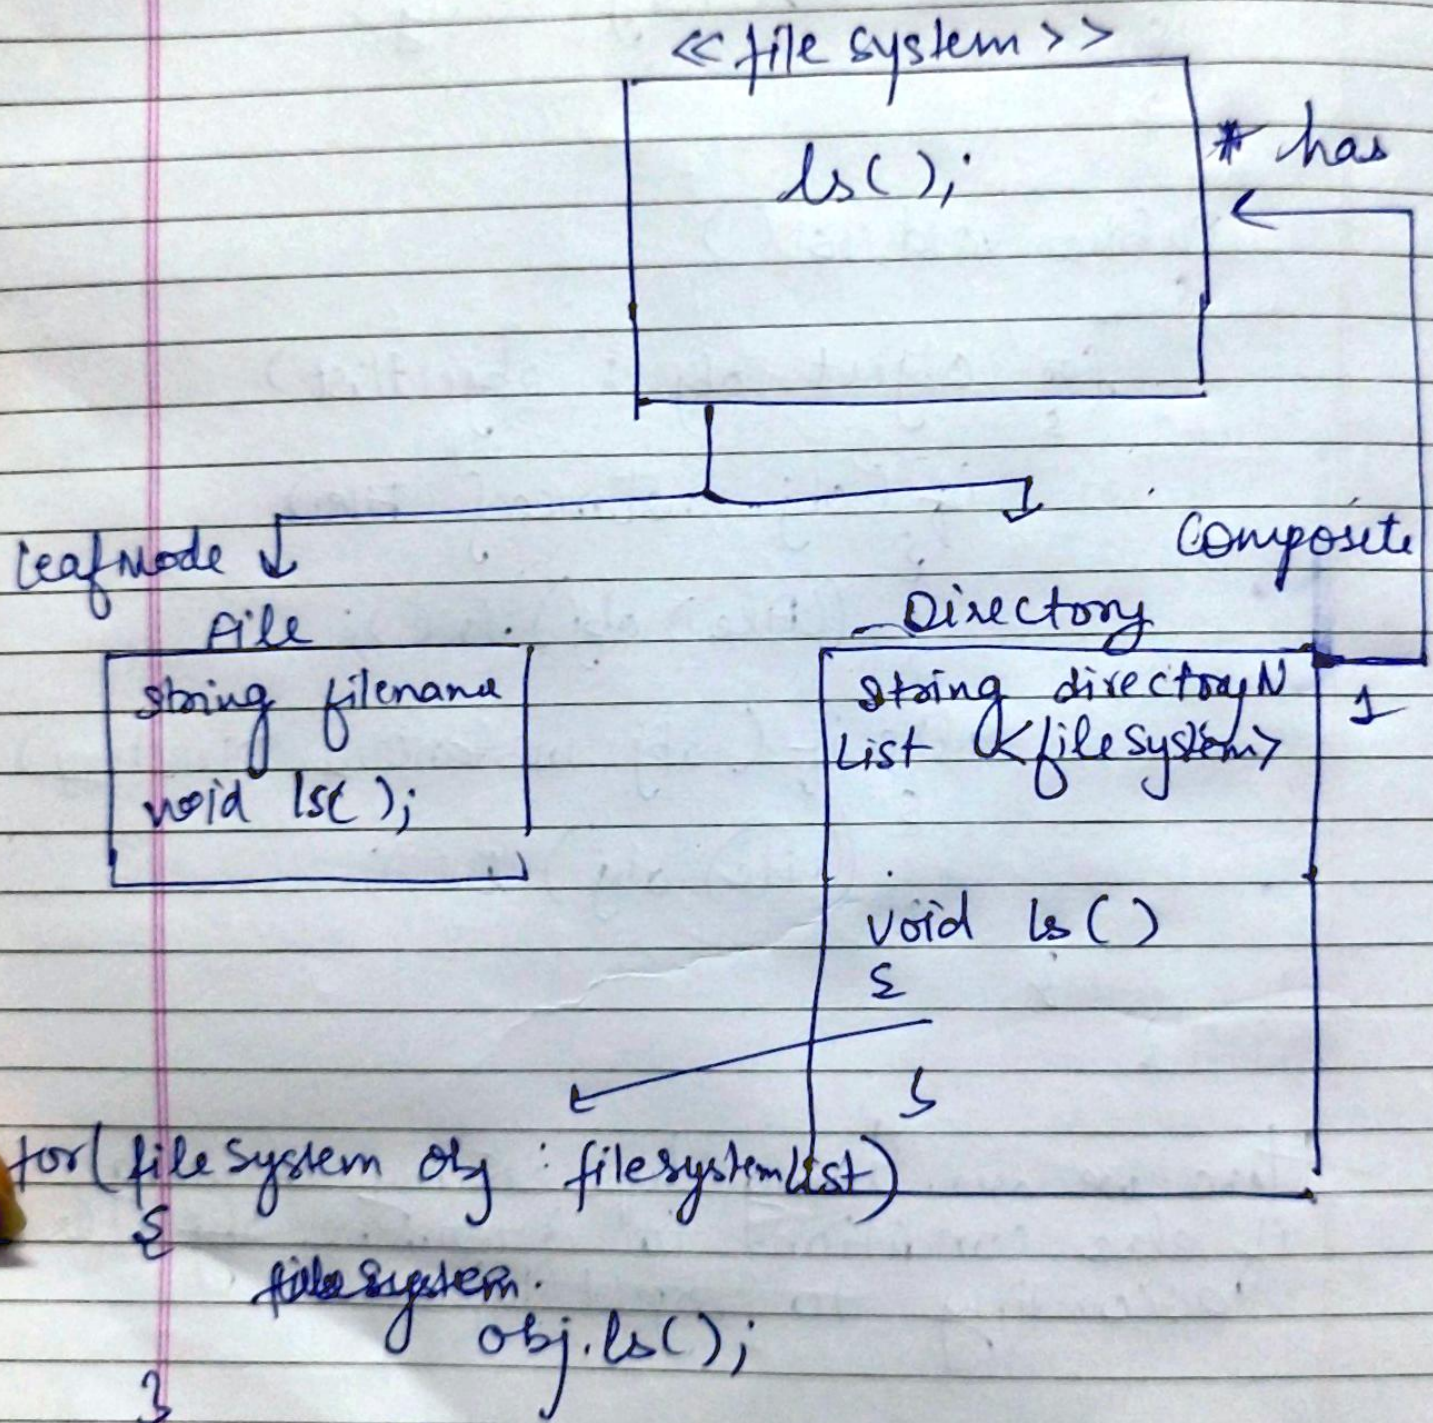 <<file system>>
* has
ls();
LeafNode
Composite
File
Directory
string filename
void ls();
string directoryN
List <fileSystem>
1
void ls()
{
}
for(fileSystem obj : filesystemList)
{
filesystem.
obj.ls();
}